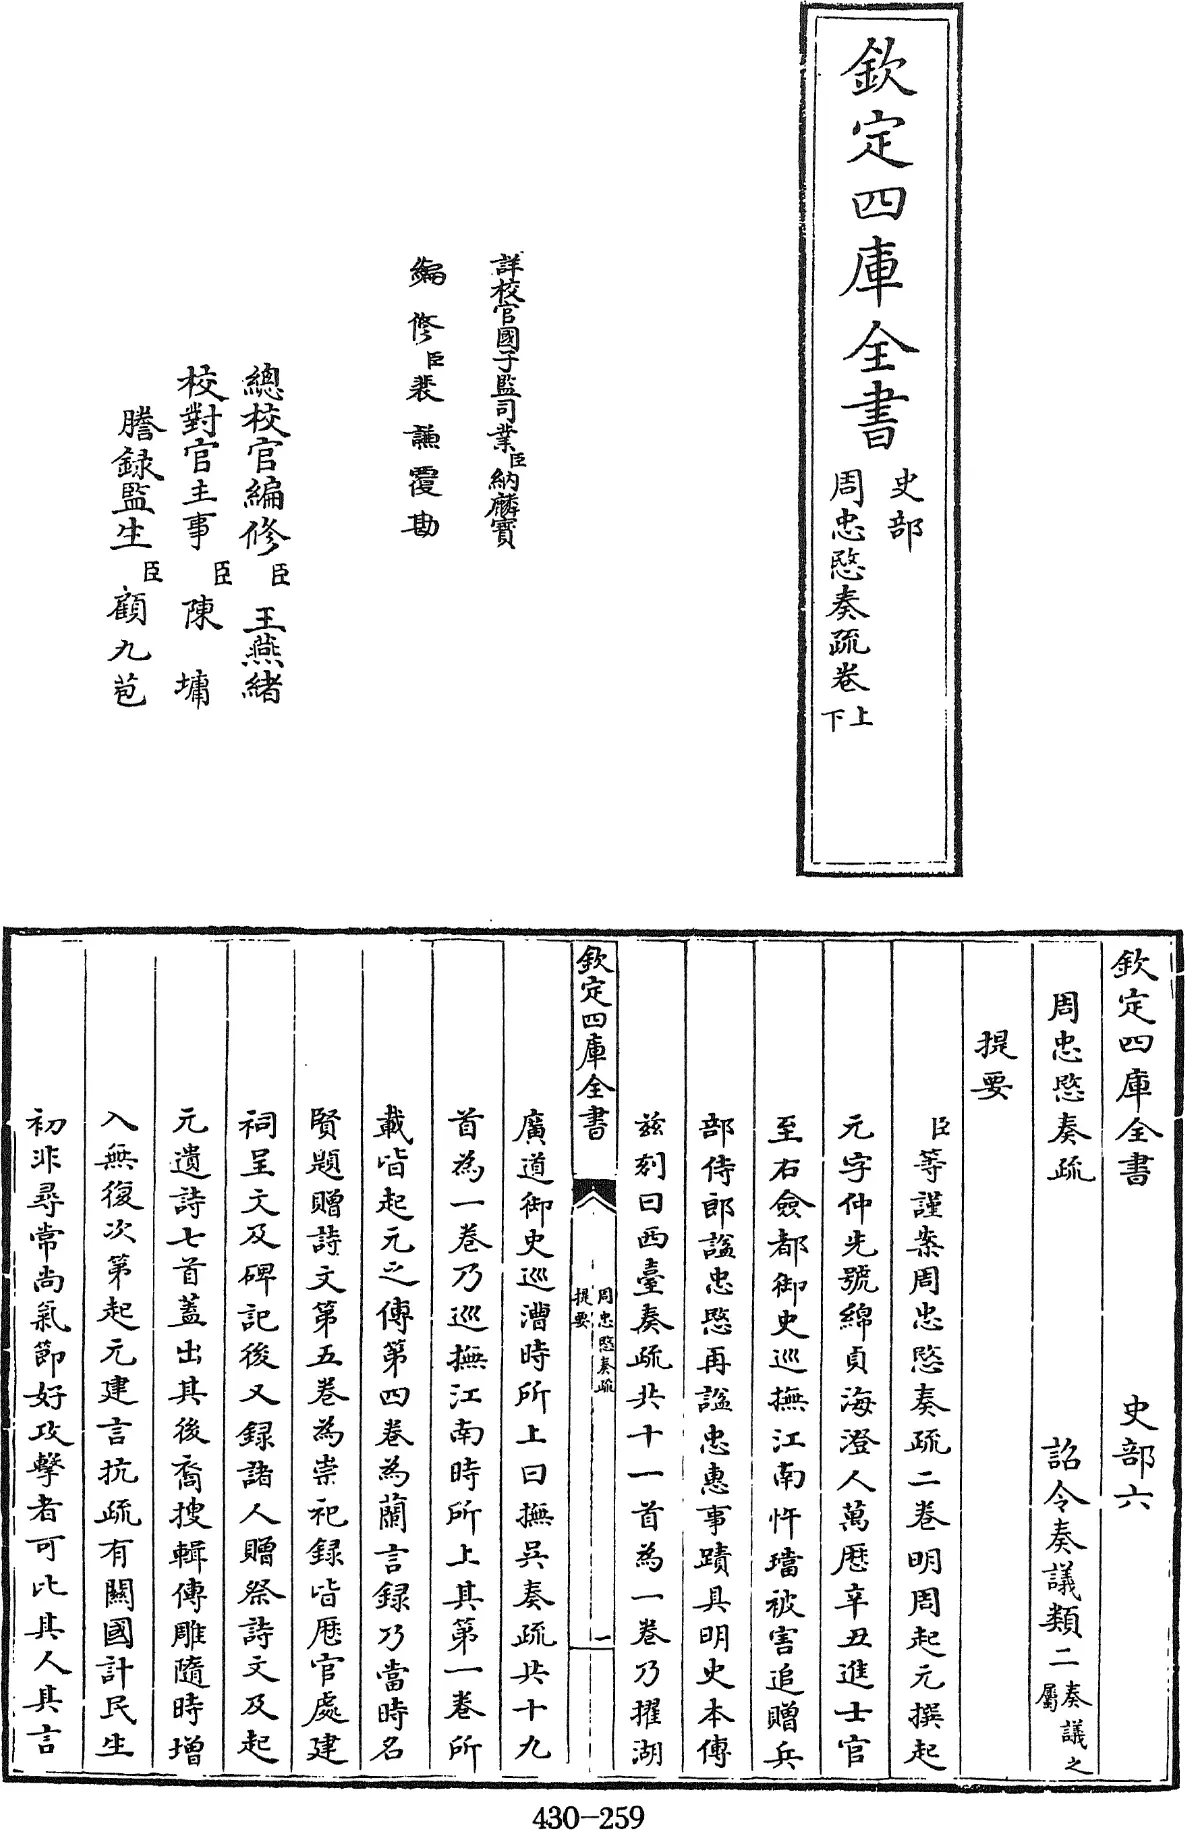 欽定四庫全書
史部
周忠愍奏疏卷上下
詳校官國子監司業臣納麟寶
編修臣裴謙覆勘
總校官編修臣王燕緒
校對官主事臣陳墉
謄録監生臣顧九苞
欽定四庫全書 史部六
周忠愍奏疏 詔令奏議類二奏議之屬
提要
臣等謹案周忠愍奏疏二卷明周起元撰起
元字仲先號綿貞海澄人萬厯辛丑進士官
至右僉都御史巡撫江南忤璫被害追贈兵
部侍郎諡忠愍再諡忠惠事蹟具明史本傳
兹刻曰西臺奏疏共十一首為一卷乃擢湖
欽定四庫全書
周忠愍奏疏
提要
一
廣道御史巡漕時所上曰撫吳奏疏共十九
首為一卷乃巡撫江南時所上其第一卷所
載皆起元之傳第四卷為蘭言録乃當時名
賢題贈詩文第五卷為崇祀録皆厯官處建
祠呈文及碑記後又録諸人贈祭詩文及起
元遺詩七首蓋出其後裔搜輯傳雕隨時增
入無復次第起元建言抗疏有關國計民生
初非尋常尚氣節好攻擊者可比其人其言
430-259